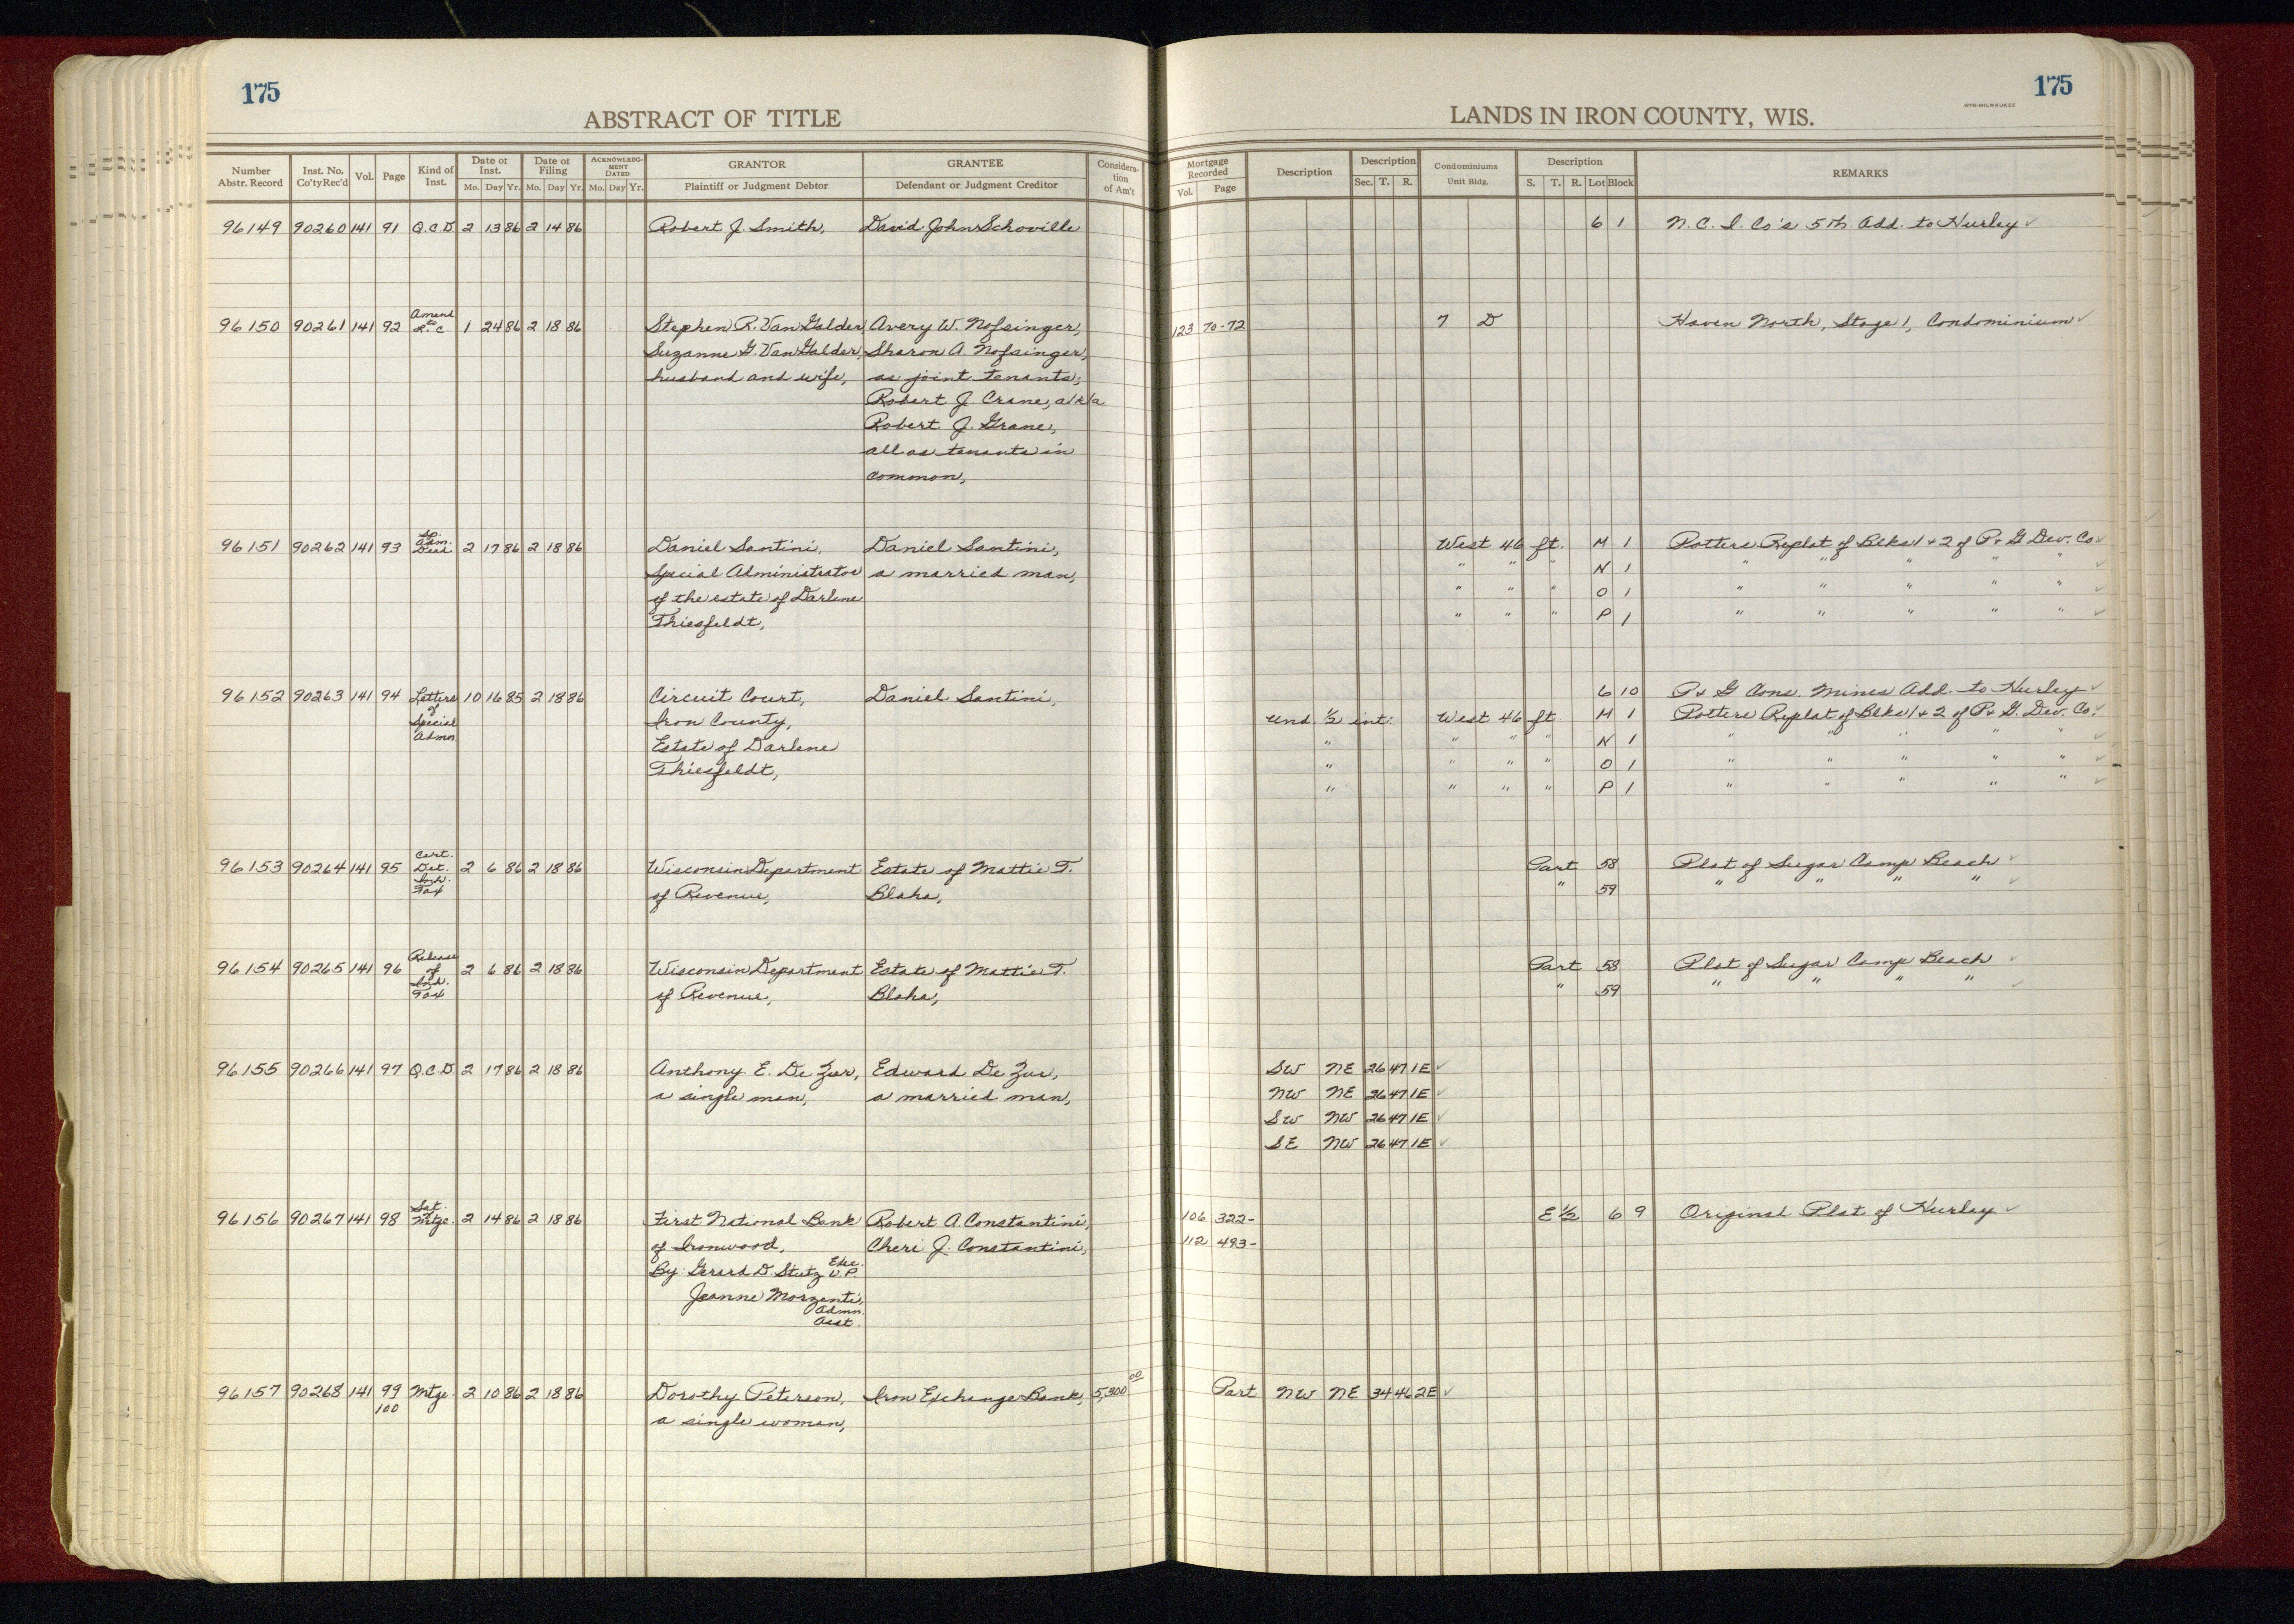 175
175
ABSTRACT OF TITLE
LANDS IN IRON COUNTY, WIS.
WPB-MILWAUKEE
Number Abstr. Record | Inst. No. Co'ty Rec'd | Vol. | Page | Kind of Inst. | Date of Inst. Mo. Day Yr. | Date of Filing Mo. Day Yr. | ACKNOWLEDGMENT DATED Mo. Day Yr. | GRANTOR Plaintiff or Judgment Debtor | GRANTEE Defendant or Judgment Creditor | Consideration of Am't | Mortgage Recorded Vol. Page | Description | Description Sec. T. R. | Condominiums Unit Bldg. | Description S. T. R. Lot Block | REMARKS
96149 90260 141 91 Q.C.D. 2 13 86 2 14 86 Robert J. Smith, David John Schoville 6 1 N. C. I. Co's 5th Add. to Hurley ✓
96150 90261 141 92 Amend to L.C. 1 24 86 2 18 86 Stephen R. Van Galder, Avery W. Nofsinger, 123 70-72 7 D Haven North, Stage 1, Condominium ✓
Suzanne G. Van Galder, Sharon A. Nofsinger,
husband and wife, as joint tenants;
Robert J. Crane, a/k/a
Robert J. Grane,
all as tenants in
common,
96151 90262 141 93 Sp. Adm. Deed 2 17 86 2 18 86 Daniel Santini, Daniel Santini, West 46 ft. M 1 Potters Replat of Blks 1 + 2 of P. + G Dev. Co ✓
Special Administrator a married man, " " " N 1 " " " " " ✓
of the estate of Darlene " " " O 1 " " " " " ✓
Thiesfeldt, " " " P 1 " " " " " ✓
96152 90263 141 94 Letters of Special Admn. 10 16 85 2 18 86 Circuit Court, Daniel Santini, 6 10 P. + G Cons. Mines Add. to Hurley ✓
Iron County, Und. ½ int. West 46 ft. M 1 Potters Replat of Blks 1 + 2 of P. + G. Dev. Co. ✓
Estate of Darlene " " " " N 1 " " " " " ✓
Thiesfeldt, " " " " O 1 " " " " " ✓
" " " " P 1 " " " " " ✓
96153 90264 141 95 Cert. Det. Inh. Tax 2 6 86 2 18 86 Wisconsin Department Estate of Mattie T. Part 58 Plat of Sugar Camp Beach ✓
of Revenue, Blaha, " 59 " " " " ✓
96154 90265 141 96 Release of Inh. Tax 2 6 86 2 18 86 Wisconsin Department Estate of Mattie T. Part 58 Plat of Sugar Camp Beach ✓
of Revenue, Blaha, " 59 " " " " ✓
96155 90266 141 97 Q.C.D 2 17 86 2 18 86 Anthony E. De Zur, Edward De Zur, SW NE 26 47 1E ✓
a single man, a married man, NW NE 26 47 1E ✓
SW NW 26 47 1E ✓
SE NW 26 47 1E ✓
96156 90267 141 98 Sat. of Mtge. 2 14 86 2 18 86 First National Bank Robert A. Constantini, 106 322- E½ 6 9 Original Plat of Hurley ✓
of Ironwood, Cheri J. Constantini, 112 493-
By: Gerard D. Stutz Exec. V.P.
Jeanne Morzenti,
Admn.
Asst.
96157 90268 141 99 Mtge. 2 10 86 2 18 86 Dorothy Peterson, Iron Exchange Bank, 5,300.00 Part NW NE 34 46 2E ✓
100 a single woman,